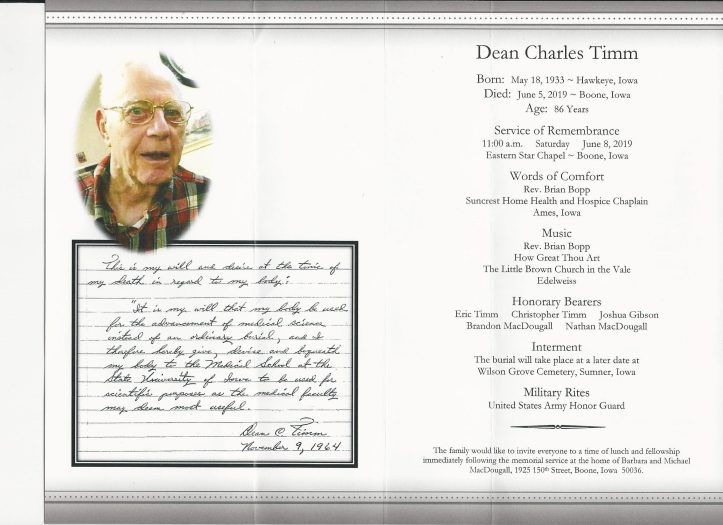 This is my will and desire at the time of
my death in regard to my body":
"It is my will that my body be used
for the advancement of medical science
instead of an ordinary burial, and I
therfore herby give, devise and bequeath
my body to the Medical School at the
State University of Iowa to be used for
scientific purposes as the medical faculty
may deem most useful.
Dean C. Timm
November 9, 1964
Dean Charles Timm
Born: May 18, 1933 ~ Hawkeye, Iowa
Died: June 5, 2019 ~ Boone, Iowa
Age: 86 Years
Service of Remembrance
11:00 a.m. Saturday June 8, 2019
Eastern Star Chapel ~ Boone, Iowa
Words of Comfort
Rev. Brian Bopp
Suncrest Home Health and Hospice Chaplain
Ames, Iowa
Music
Rev. Brian Bopp
How Great Thou Art
The Little Brown Church in the Vale
Edelweiss
Honorary Bearers
Eric Timm Christopher Timm Joshua Gibson
Brandon MacDougall Nathan MacDougall
Interment
The burial will take place at a later date at
Wilson Grove Cemetery, Sumner, Iowa
Military Rites
United States Army Honor Guard
The family would like to invite everyone to a time of lunch and fellowship
immediately following the memorial service at the home of Barbara and Michael
MacDougall, 1925 150th Street, Boone, Iowa 50036.